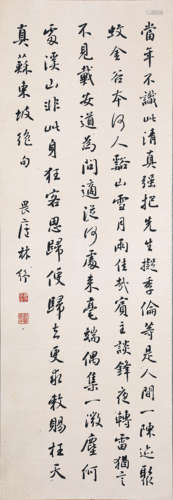 當年不識此清真強把先生擬季倫等是人間一陳迹聚
蚊金谷本何人谿山雪月兩佳哉賓主談鋒夜轉雷猶言
不見戴安道為問適從何處來毫端偶集一微塵何
處溪山非此身狂客思歸便歸去更求敕賜枉天
真蘇東坡絕句
畏廬林紓